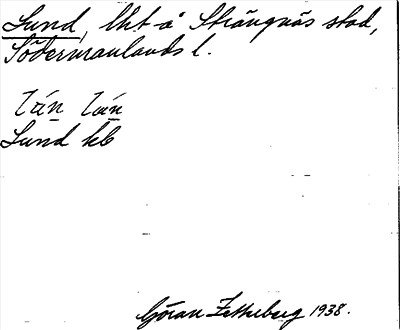 Lund, lht å Strängnäs stad,
Södermanlands l.
Lund
Göran Zetterberg 1938.